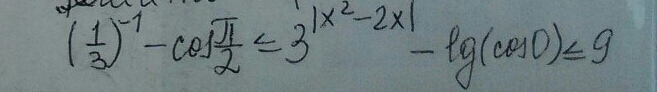 (1/3)^-1 - cos π/2 ≤ 3^|x^2-2x| - lg(cos0) ≤ 9